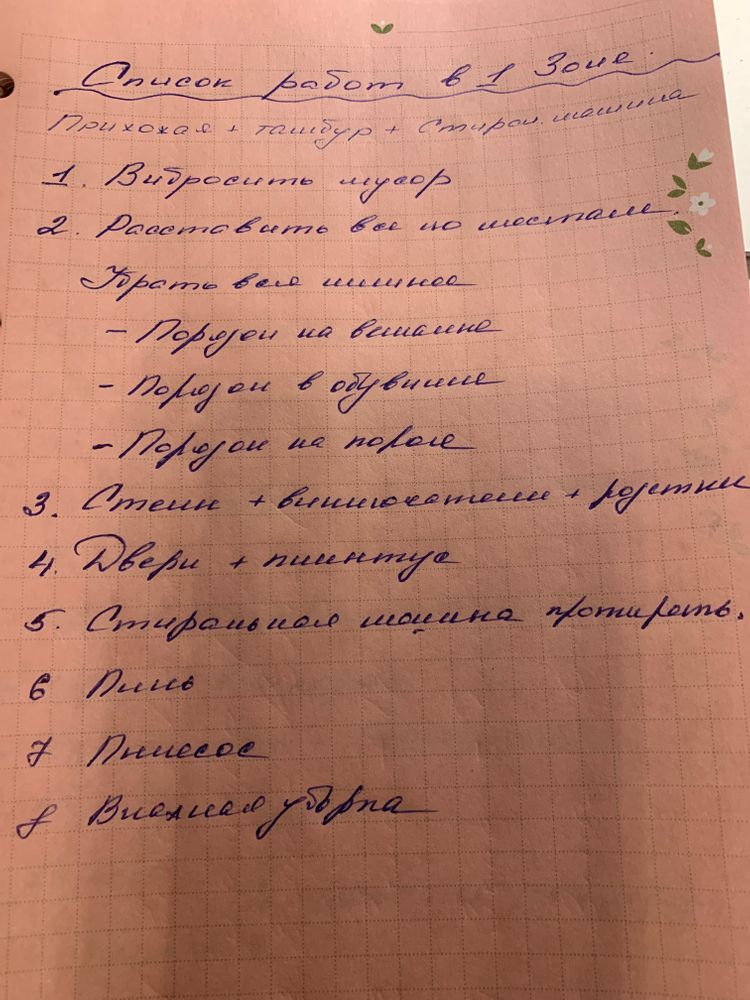 Список работ в 1 Зоне.
Прихожая + тамбур + Стирал. машина
1. Выбросить мусор
2. Расставить все по местам.
Убрать все лишнее
- Порядок на вешалке
- Порядок в обувнице
- Порядок на пороге
3. Стены + выключатели + розетки
4. Двери + плинтус
5. Стиральная машина протирать.
6 Пыль
7 Пылесос
8 Влажная уборка